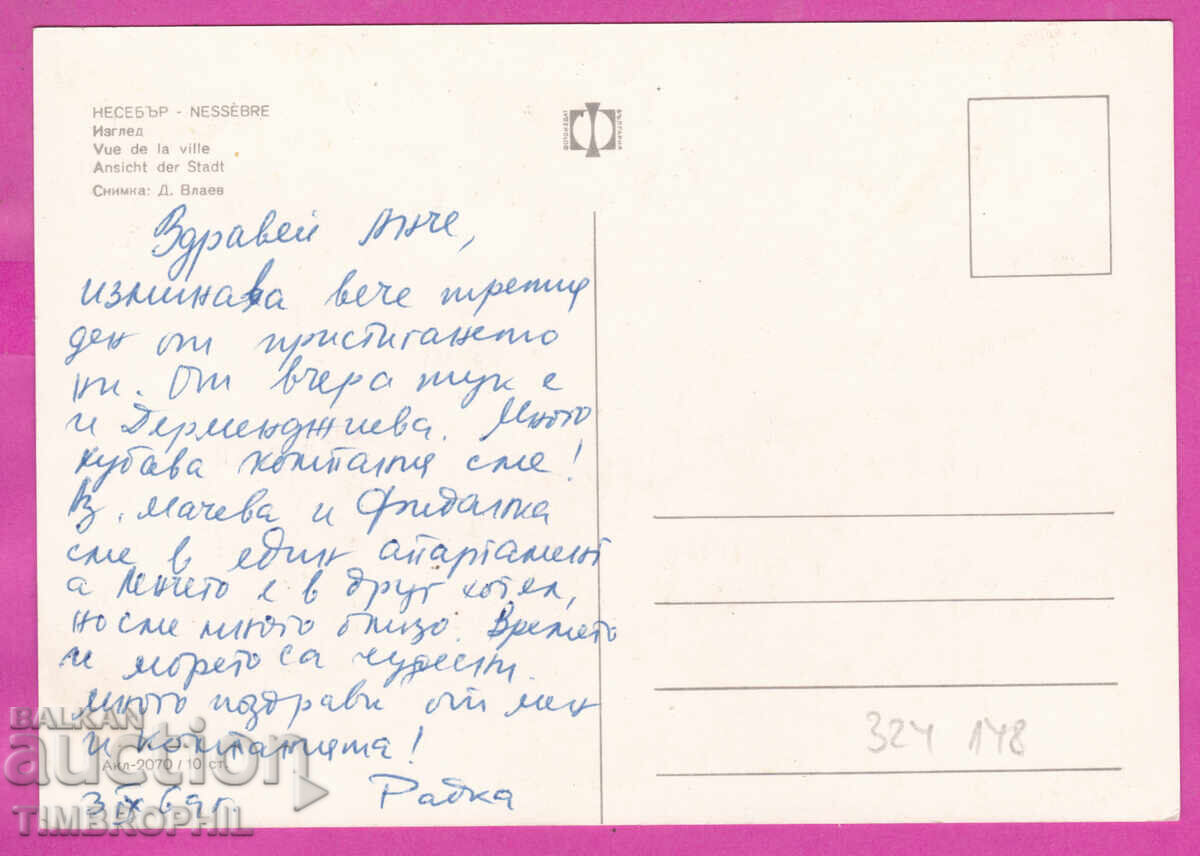 НЕСЕБЪР - NESSÈBRE
Изглед
Vue de la ville
Ansicht der Stadt
Снимка: Д. Влаев
ФОТОИЗДАТ
БЪЛГАРИЯ
Здравей Анче,
изминава вече трети
ден от пристигането
ни. От вчера тук е
и Дерменджиева. Много
хубава компания сме!
В. Мачева и Фиданка
сме в един апартамент
а Ленчето е в друг хотел,
но сме много близо. Времето
и морето са чудесни.
Много поздрави от мен
и компанията!
Акл-2070 / 10 ст.
3 IX 69 г. Радка
324 148
BALKAN
auction
TIMBROPHIL